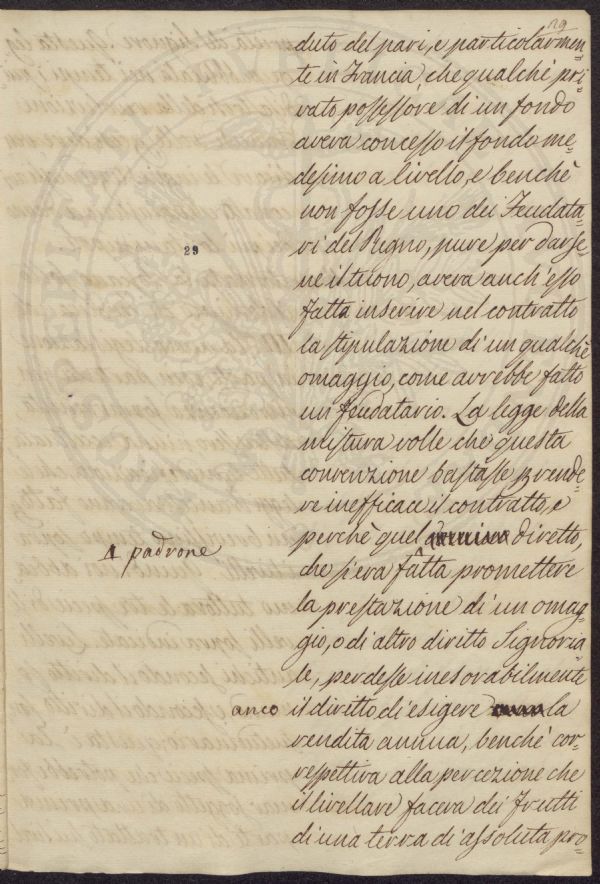 29
duto del pari, e particolarmen-
te in Francia, che qualche pri-
vato possessore di un fondo
aveva concesso il fondo me-
desimo a livello, e benchè
non fosse uno dei Feudata-
29
ri del Regno, pure per darse-
ne il tuono, aveva anch'esso
fatta inserire nel contratto
la stipulazione di un qualchè
omaggio, come avrebbe fatto
un feudatario. La legge della
mistura volle che questa
convenzione bastasse p rende-
re inefficace il contratto, e
perchè quel diretto,
padrone
che s'era fatta promettere
la prestazione di un omag-
gio, o di altro diritto Signoria-
le, perdesse inesorabilmente
anco il diritto di esigere la
rendita annua, benchè cor-
respettiva alla percezione che
il livellare faceva dei frutti
di una terra di assoluta pro-